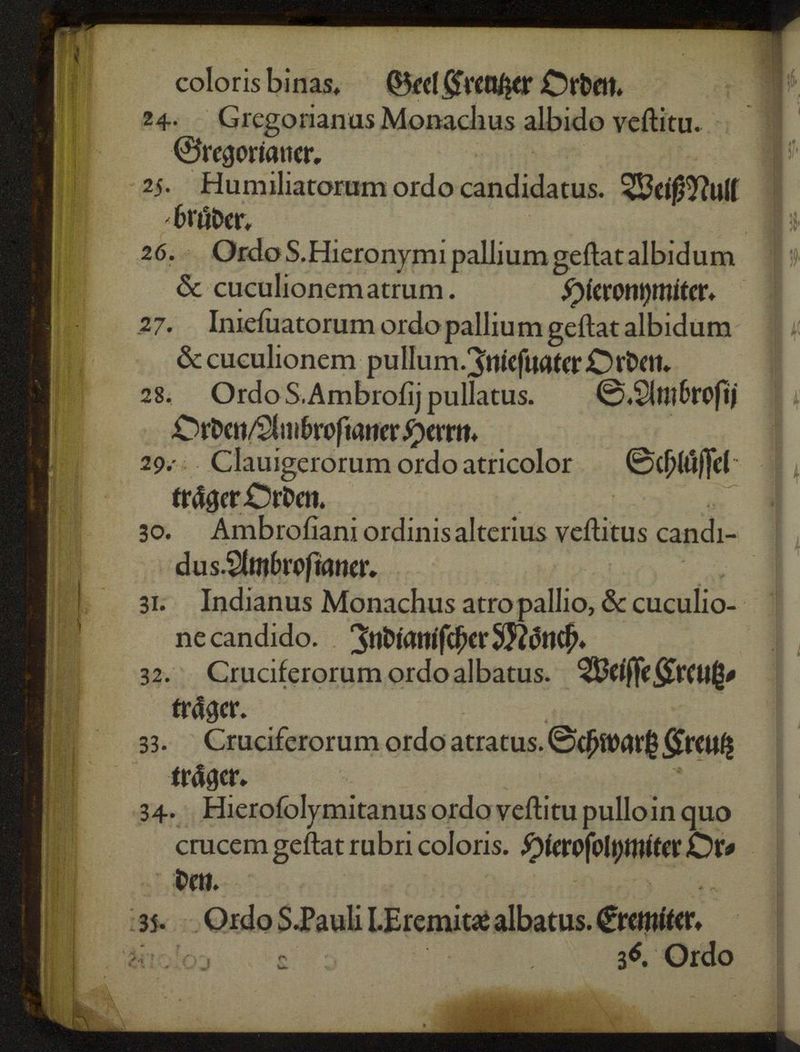 coloris binas, Geel Creutzer Orden.
24. Gregorianus Monachus albido veſtitu.
Gregorianer.
25. Humiliatorum ordo candidatus. Weiß Null
brůder.
26. Ordo S. Hieronymi pallium geſtat albidum
& cuculionem atrum. Hieronymiter.
27. Inieſuatorum ordo pallium geſtat albidum
& cuculionem pullum. Jnieſuater Orden.
28. Ordo S. Ambroſij pullatus. S. Ambroſij
Orden/Ambroſianer Herrn.
29. Clauigerorum ordo atricolor Schlůſſel
tråger Orden.
30. Ambroſiani ordinis alterius veſtitus candi-
dus. Ambroſianer.
31. Indianus Monachus atro pallio, & cuculio-
ne candido. Jndianiſcher Mőnch.
32. Cruciferorum ordo albatus. Weiſſe Creutz-
tråger.
33. Cruciferorum ordo atratus. Schwartz Creutz
tråger.
34. Hieroſolymitanus ordo veſtitu pullo in quo
crucem geſtat rubri coloris. Hieroſolymiter Or-
den.
35. Ordo S. Pauli I. Eremitæ albatus. Eremiter.
36. Ordo